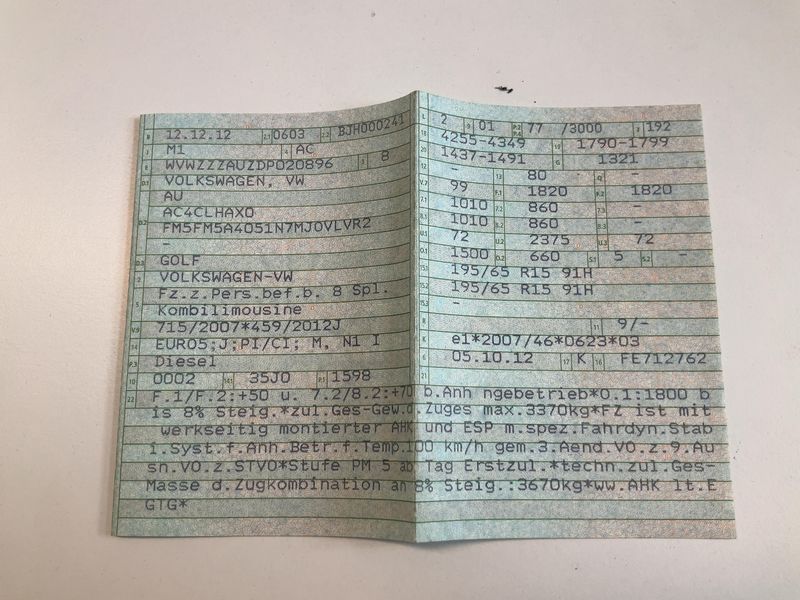 B 12.12.12 2.1 0603 2.2 BJH000241
J M1 4 AC
E WVWZZZAUZDP020896 3 8
D.1 VOLKSWAGEN, VW
AU
D.2 AC4CLHAX0
FM5FM5A4051N7MJOVLVR2
-
D.3 GOLF
2 VOLKSWAGEN-VW
5 Fz.z.Pers.bef.b. 8 Spl.
Kombilimousine
V.9 715/2007*459/2012J
14 EURO5;J;PI/CI; M, N1 I
P.3 Diesel
10 0002 14.1 35J0 P.1 1598
L 2 9 01 P.2 P.4 77 /3000 T 192
18 4255-4349 19 1790-1799
20 1437-1491 G 1321
12 - 13 80 Q -
V.7 99 F.1 1820 F.2 1820
7.1 1010 7.2 860 7.3 -
8.1 1010 8.2 860 8.3 -
U.1 72 U.2 2375 U.3 72
O.1 1500 O.2 660 S.1 5 S.2 -
15.1 195/65 R15 91H
15.2 195/65 R15 91H
15.3 -
R 11 9/-
K e1*2007/46*0623*03
6 05.10.12 17 K 16 FE712762
21
22 F.1/F.2:+50 u. 7.2/8.2:+70 b.Anh ngebetrieb*O.1:1800 b
is 8% Steig.*zul.Ges-Gew.d.Zuges max.3370kg*FZ ist mit
werkseitig montierter AHK und ESP m.spez.Fahrdyn.Stab
i.Syst.f.Anh.Betr.f.Temp.100 km/h gem.3.Aend.VO.z.9.Au
sn.VO.z.STVO*Stufe PM 5 ab Tag Erstzul.*techn.zul.Ges-
Masse d.Zugkombination an 8% Steig.:3670kg*ww.AHK lt.E
GTG*